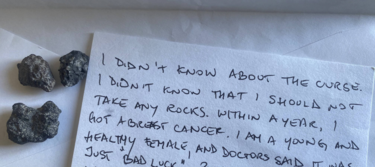 I DIDN'T KNOW ABOUT THE CURSE.
I DIDN'T KNOW THAT I SHOULD NOT
TAKE ANY ROCKS. WITHIN A YEAR, I
GOT A BREAST CANCER. I AM A YOUNG AND
HEALTHY FEMALE, AND DOCTORS SAID IT WAS
JUST "BAD LUCK".